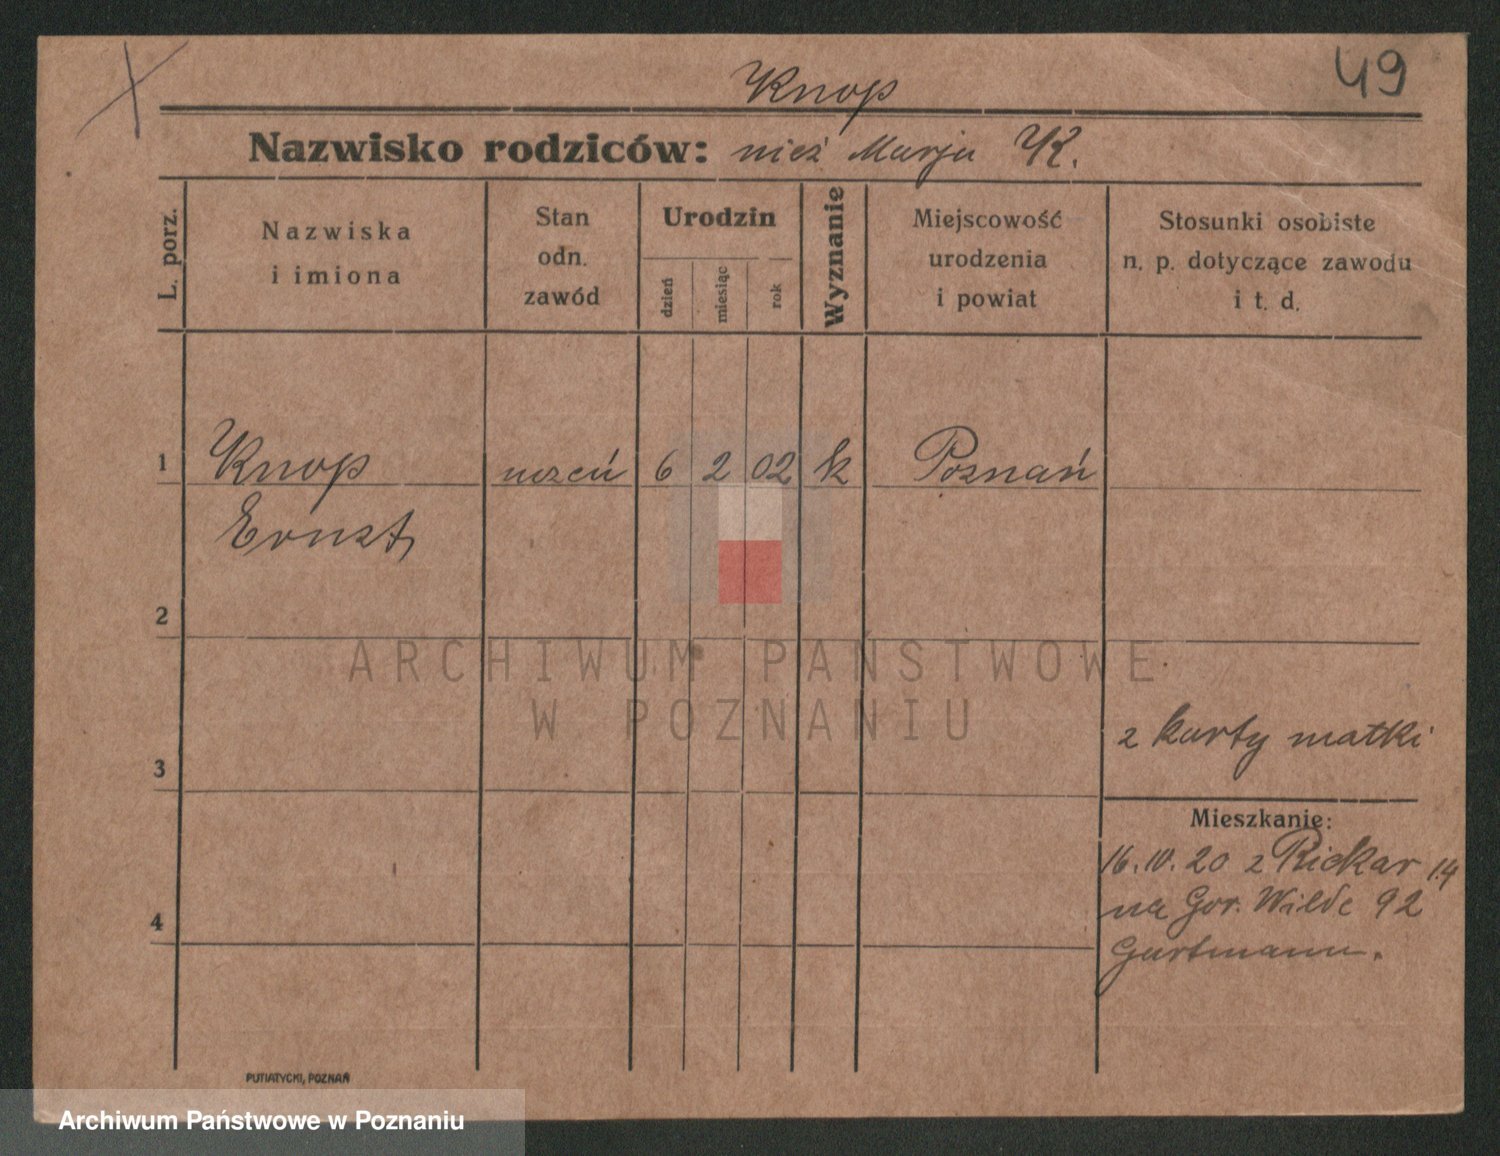 X
49
Knop
Nazwisko rodziców: nież Marja K.
L. porz.
Nazwiska
i imiona
Stan
odn.
zawód
Urodzin
dzień
miesiąc
rok
Wyznanie
Miejscowość
urodzenia
i powiat
Stosunki osobiste
n. p. dotyczące zawodu
i t. d.
1 Knop uczeń 6 2 02 k Poznań
Ernst
2
ARCHIWUM PAŃSTWOWE
W POZNANIU
z karty matki
3
Mieszkanie:
16.IV.20 z Rickar 14
na Gor. Wilde 92
4
Gartmann.
PUTIATYCKI, POZNAŃ
Archiwum Państwowe w Poznaniu